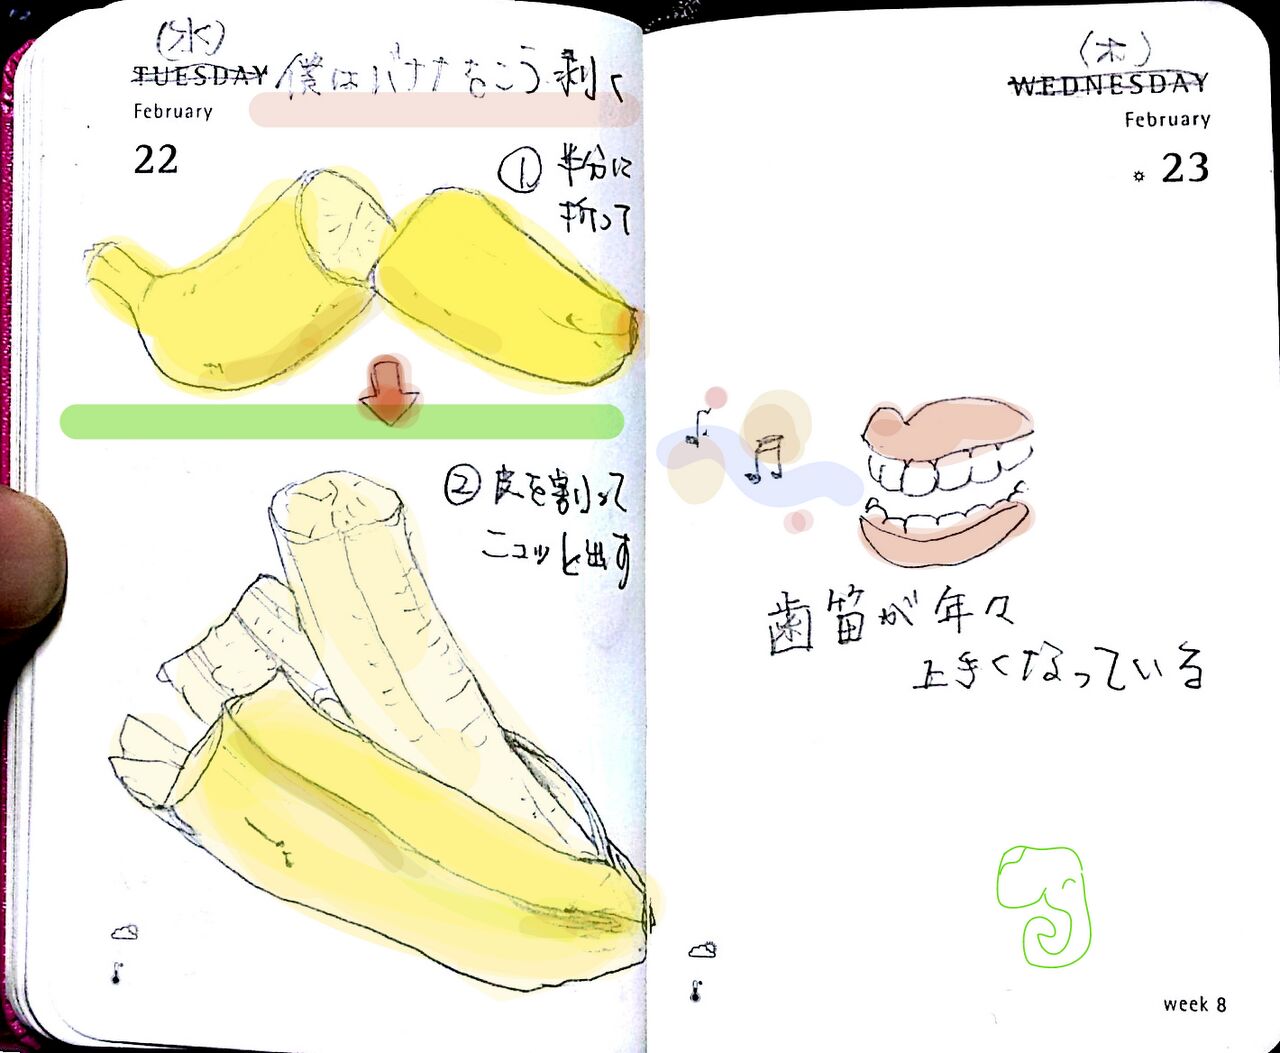 (水)
TUESDAY
February
22
僕はバナナをこう剥く
① 半分に
折って
② 皮を割って
ニュッと出す
(木)
WEDNESDAY
February
23
歯笛が年々
上手くなっている
week 8